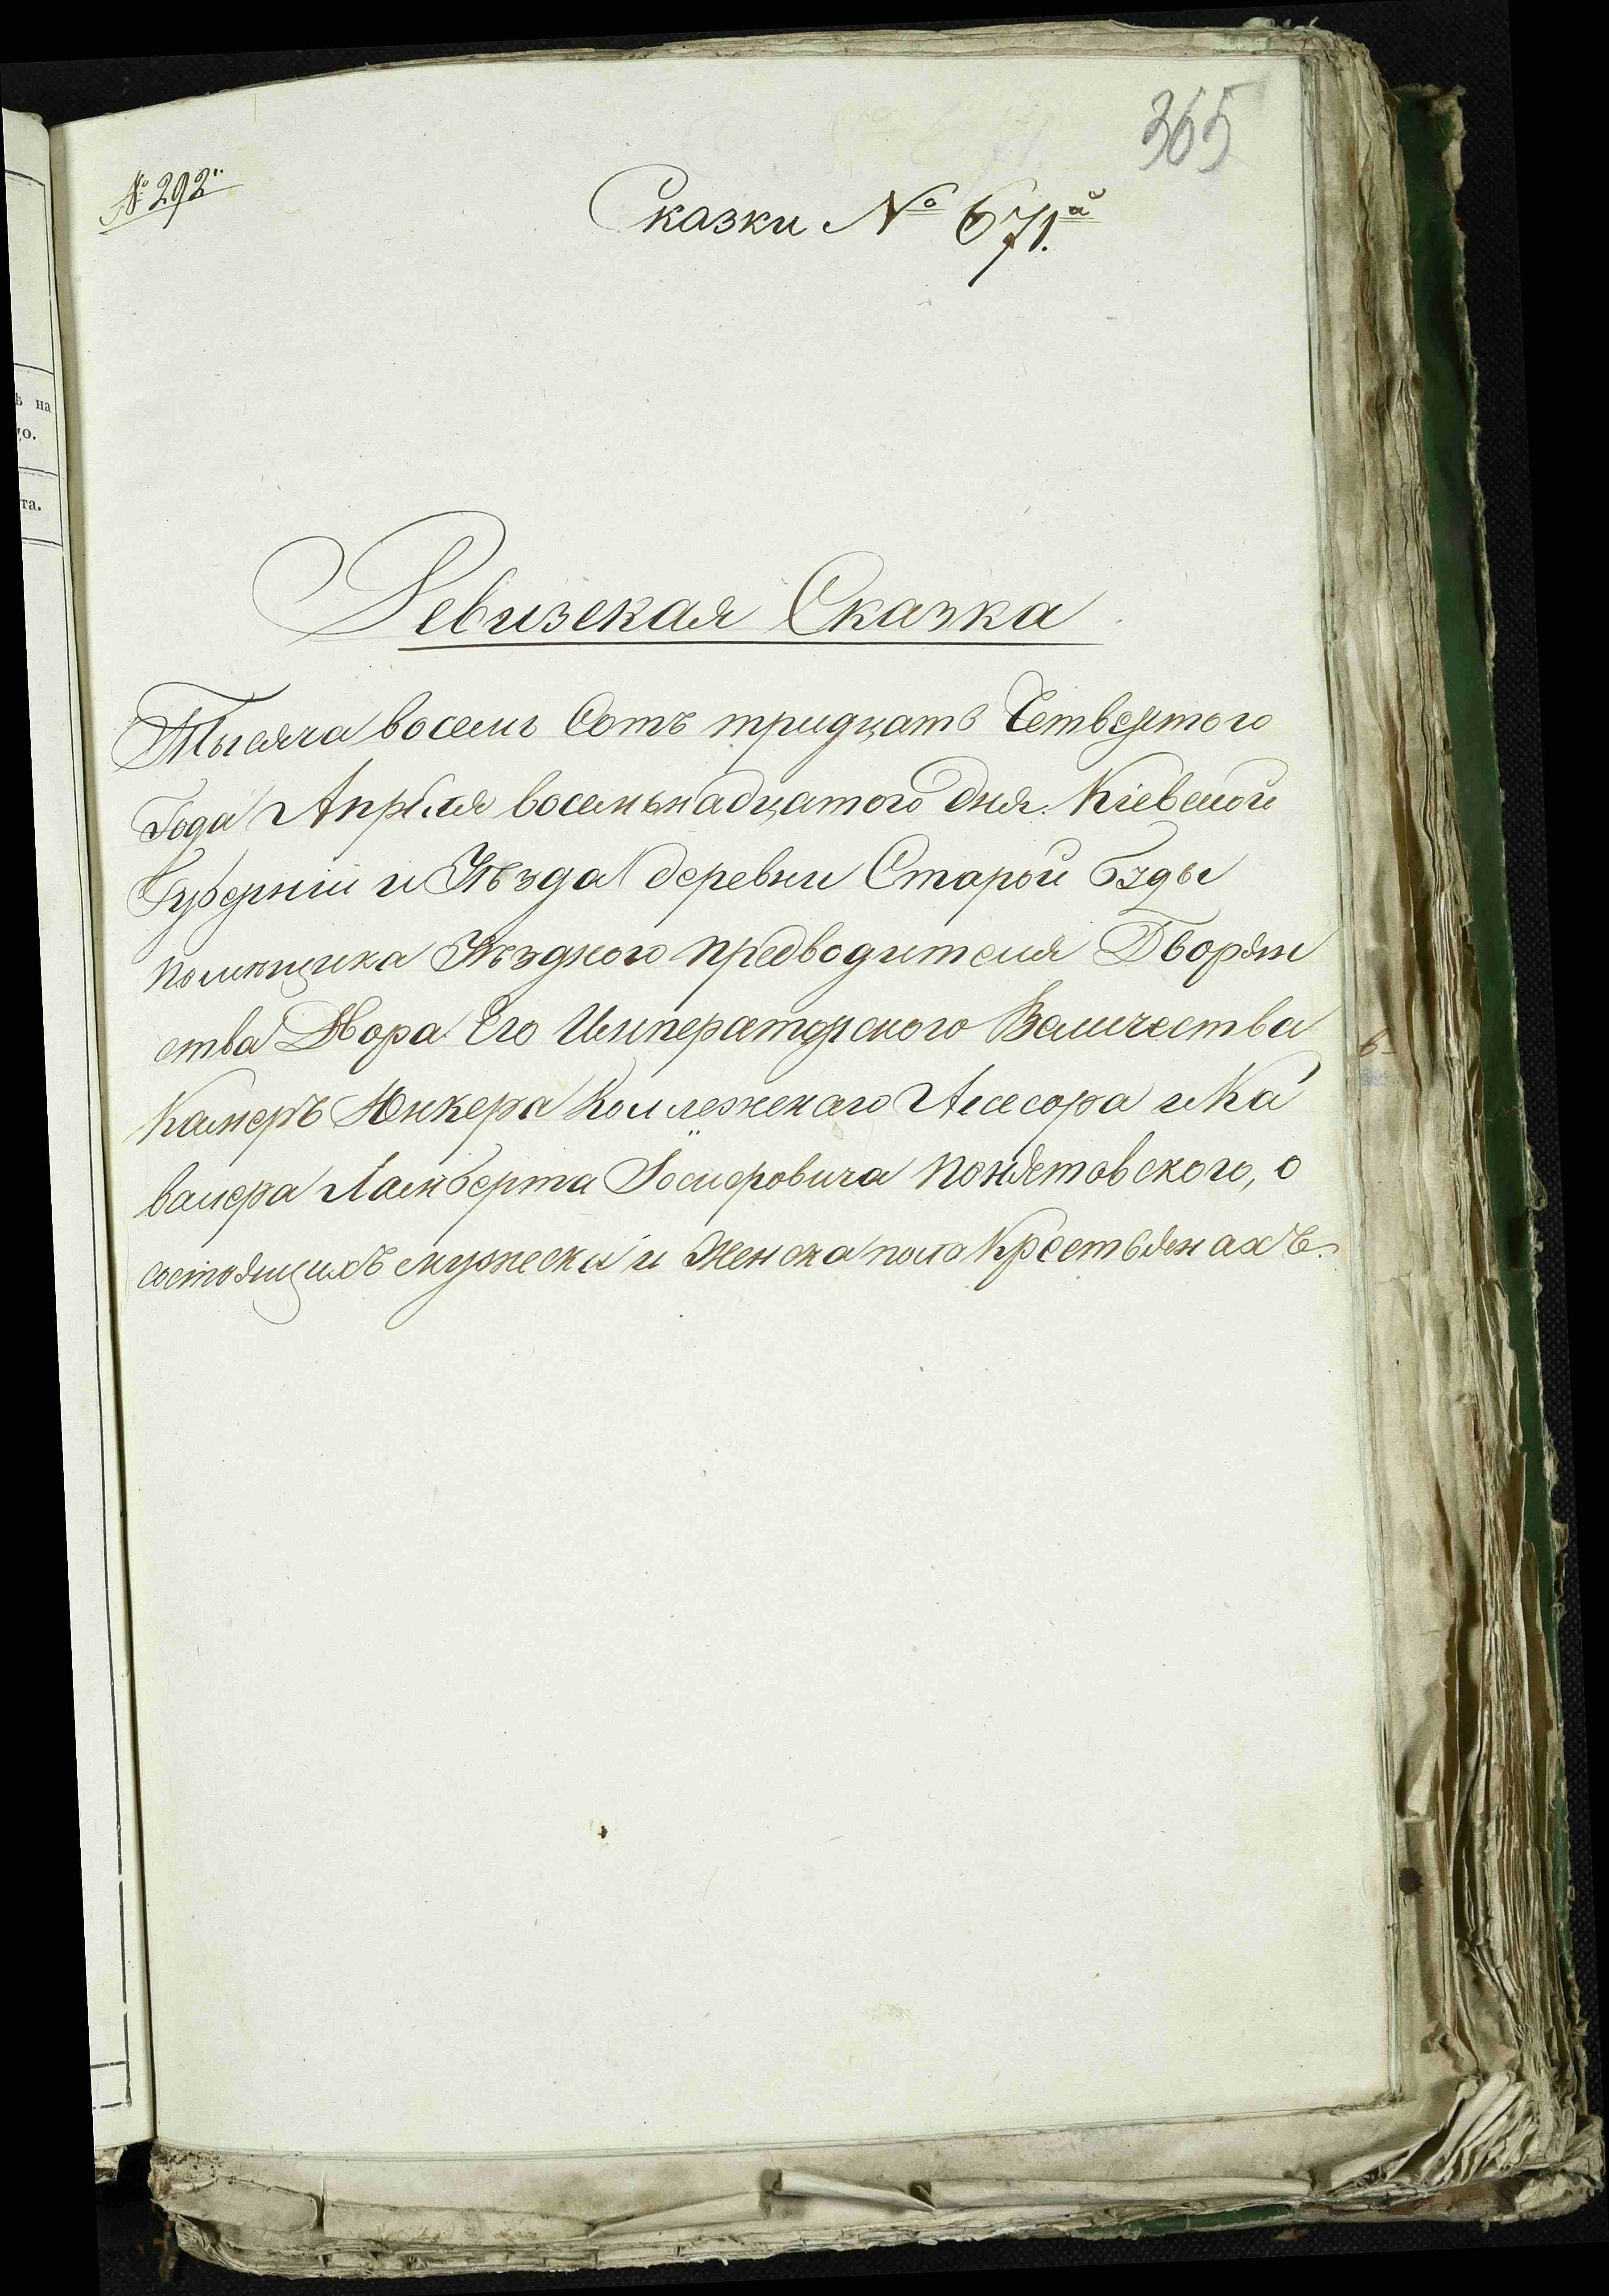 365
№ 292.
Сказки № 671.й
ѣ на
цо.
та.
Ревизская Сказка
Тысяча восемь Сотъ тридцать Четвертого
Года Апрѣля восемьнадцатого дня. Кіевской
Губерніи и Уѣзда деревни Старой Бзды
помѣщика Уѣздного предводителя Дворян
ства Двора Его Императорского Величества
Камеръ Юнкера Коллежскаго Ассесора и Ка
валера Ламберта Іосифовича Понятовского, о
состоящихъ мужеска и Женска пола Крестьянахъ.